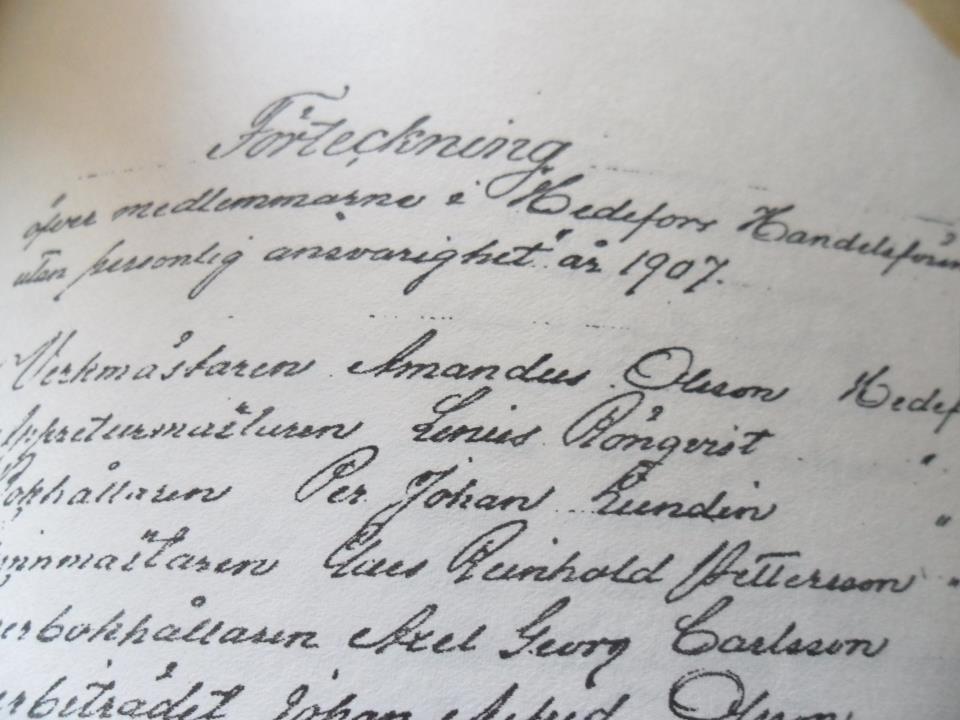 Förteckning
öfver medlemmarne i "Hedefors Handelsfören
utan personlig ansvarighet" år 1907.
Verkmästaren Amandus Olsson Hedef
ppreturmästaren Linus Rönqvist "
Bokhållaren Per Johan Lundin "
innmästaren Claes Reinhold Pettersson "
erbokhållaren Axel Georg Carlsson
rbeträdet Johan Alfred Olsson